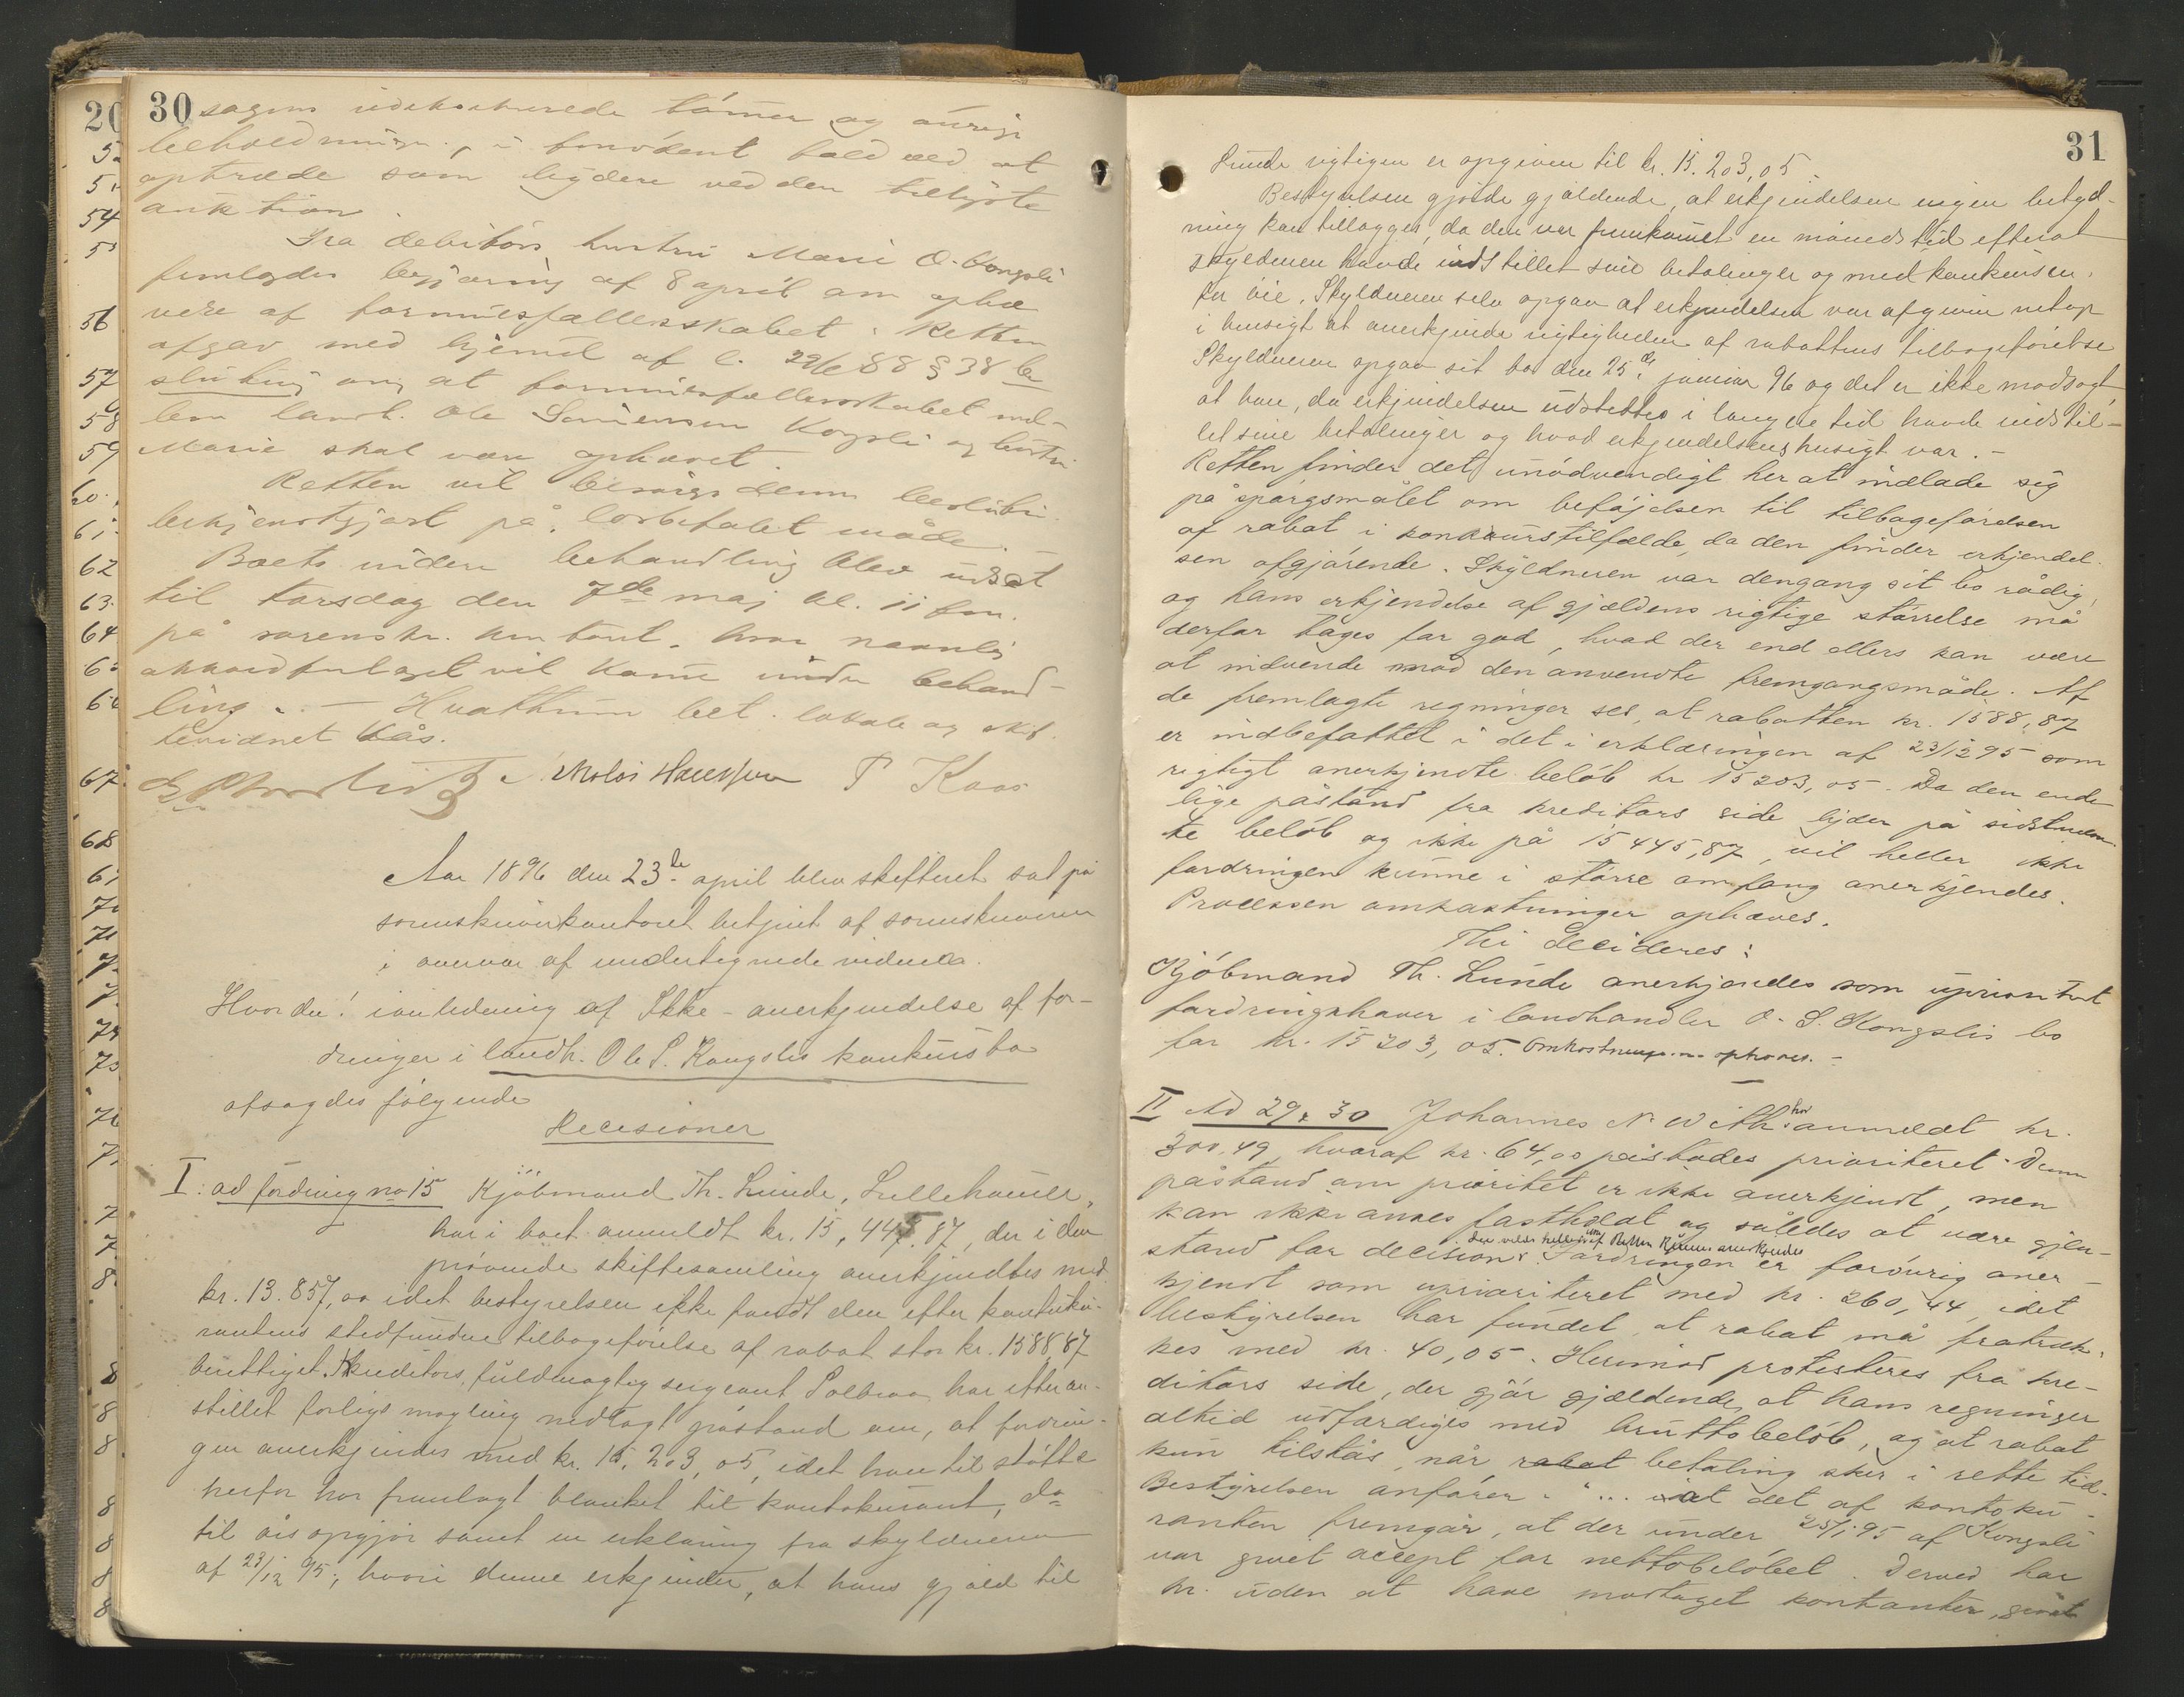 30
sagens udekreterede tømmer og øvrige
beholdning, i fornødent fald ved at
optræde som bydere ved den tilbyste
auktion.
Fra debitors hustru Marie O. Kongsli
fremlagdes begjæring af 8 april om ophæ
velse af formuesfællesskabet. Retten
afgav med hjemel af l. 29/6 88 § 38 be
slutning om at formuesfællesskabet mel-
lem landh. Ole Sørensen Kongsli og hustru
Marie skal være ophævet.
Retten vil besørge denne beslutning
bekjendtgjort på lovbefalet måde. —
Boets videre behandling blev udsat
til torsdag den 7de maj kl. 11 fm.
på sorenskr. kontoret, hvor navnlig
akkordforslaget vil komme under behand-
ling. — Hvattum bet. lokale og skr.
levidnet Kås.
Nikolai Hansen P Kaas
Aar 1896 den 23de april blev skifteret sat på
sorenskriverkontoret betjent af sorenskriveren
i overvær af undertegnede vidner.
Hvorda! i anledning af Ikke-anerkjendelse af for-
dringer i landh. Ole S. Kongslis konkursbo
afsagdes følgende
Decisioner
I: ad fordring no 15 Kjøbmand Th. Lunde, Lillehammer,
har i boet anmeldt kr. 15,445.87, der i den
prøvende skiftesamling anerkjendtes med
kr. 13.857,00 idet bestyrelsen ikke fandt den efter kontoku-
rantens stedfundne tilbageførelse af rabat stor kr. 1588,87
berettiget. Kreditors fuldmægtig sergeant Solbraa har efter an-
stillet forligsmægling nedlagt påstand om, at fordrin-
gen anerkjendes med kr. 15,203,05, idet han til støtte
herfor har fremlagt blanket til kontokurant, do
til årsopgjør samt en erklæring fra skyldneren
af 23/12 95, hvori denne erkjender, at hans gjæld til
31
Lunde rigtigen er opgiven til kr. 15.203,05.
Bestyrelsen gjorde gjældende, at erkjendelsen ingen betyd-
ning kan tillægges, da den var fremkommet en måneds tid efterat
skyldneren havde indstillet sine betalinger og med konkursen
for øie. Skyldneren selv opgav at erkjendelsen var afgiven netop
i hensigt at anerkjende rigtigheden af rabattens tilbageførelse
Skyldneren opgav sit bo den 25de januar 96 og det er ikke modsagt,
at han, da erkjendelsen udstedtes i længere tid havde indstil-
let sine betalinger og hvad erkjendelsens hensigt var. -
Retten finder det unødvendigt her at indlade sig
på spørgsmålet om beføjelsen til tilbageførelsen
af rabat i konkurstilfælde, da den finder erkjendel-
sen afgjørende. Skyldneren var dengang sit bo rådig,
og hans erkjendelse af gjældens rigtige størrelse må
derfor tages for god, hvad der end ellers kan være
at indvende mod den anvendte fremgangsmåde. Af
de fremlagte regninger ses, at rabatten kr. 1588,87
er indbefattet i det i erklæringen af 23/12 95 som
rigtigt anerkjendte beløb kr 15203,05. Da den ende
lige påstand fra kreditors side lyder på sidstnævn-
te beløb og ikke på 15445,87, vil heller ikke
fordringen kunne i større omfang anerkjendes.
Processen omkostninger ophæves.
Thi decideres:
Kjøbmand Th. Lunde anerkjendes som uprioritert
fordringshaver i landhandler O. S. Kongslis bo
for kr. 15203,05. Omkostningerne ophæves. -
II Ad 29 & 30 Johannes N. With har anmeldt kr.
300,49, hvoraf kr. 64,00 påstodes prioriteret. Denne
påstand om prioritet er ikke anerkjendt, men
kan ikke anses fastholdt og således at være gjen-
stand for decision. Fordringen er forøvrig aner-
kjendt som uprioriteret med kr. 260,44, idet
bestyrelsen har fundet, at rabat må fratræk-
kes med kr. 40,05. Herimod protesteres fra kre-
ditors side, der gjør gjældende, at hans regninger
altid udfærdiges med bruttobeløb, og at rabat
kun tilstås, når rabat betaling sker i rette tid.
Bestyrelsen anfører: "... at det af kontoku-
ranten fremgår, at der under 25/1 95 af Kongsli
var givet accept for nettobeløbet. Derved har
hr. uden at have modtaget kontanter, givet